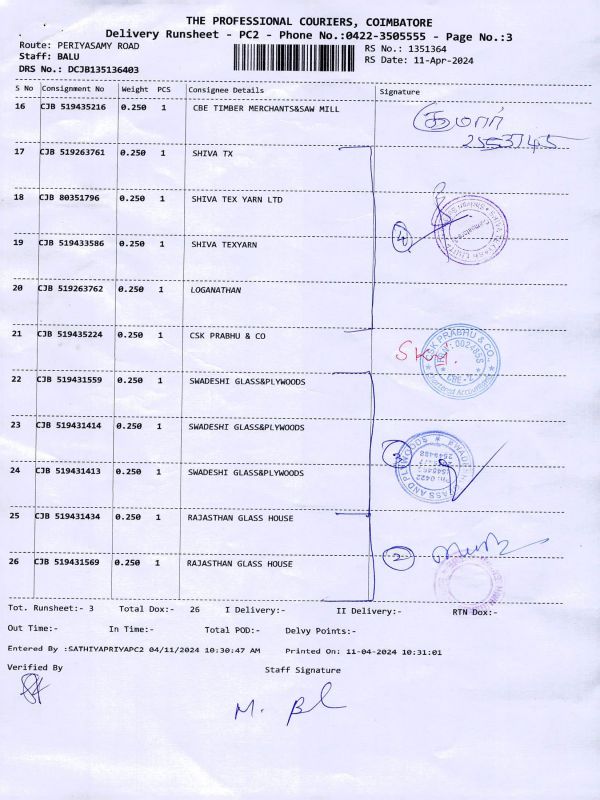 THE PROFESSIONAL COURIERS, COIMBATORE
Delivery Runsheet - PC2 - Phone No.:0422-3505555 - Page No.:3
Route: PERIYASAMY ROAD RS No.: 1351364
Staff: BALU RS Date: 11-Apr-2024
DRS No.: DCJB135136403
S No Consignment No Weight PCS Consignee Details Signature
16 CJB 519435216 0.250 1 CBE TIMBER MERCHANTS&SAW MILL குமார்
17 CJB 519263761 0.250 1 SHIVA TX
18 CJB 80351796 0.250 1 SHIVA TEX YARN LTD
19 CJB 519433586 0.250 1 SHIVA TEXYARN 4
20 CJB 519263762 0.250 1 LOGANATHAN
21 CJB 519435224 0.250 1 CSK PRABHU & CO CSK PRABHU & CO
22 CJB 519431559 0.250 1 SWADESHI GLASS&PLYWOODS
23 CJB 519431414 0.250 1 SWADESHI GLASS&PLYWOODS 3
24 CJB 519431413 0.250 1 SWADESHI GLASS&PLYWOODS
25 CJB 519431434 0.250 1 RAJASTHAN GLASS HOUSE
26 CJB 519431569 0.250 1 RAJASTHAN GLASS HOUSE 2
Tot. Runsheet:- 3 Total Dox:- 26 I Delivery:- II Delivery:- RTN Dox:-
Out Time:- In Time:- Total POD:- Delvy Points:-
Entered By :SATHIYAPRIYAPC2 04/11/2024 10:30:47 AM Printed On: 11-04-2024 10:31:01
Verified By Staff Signature